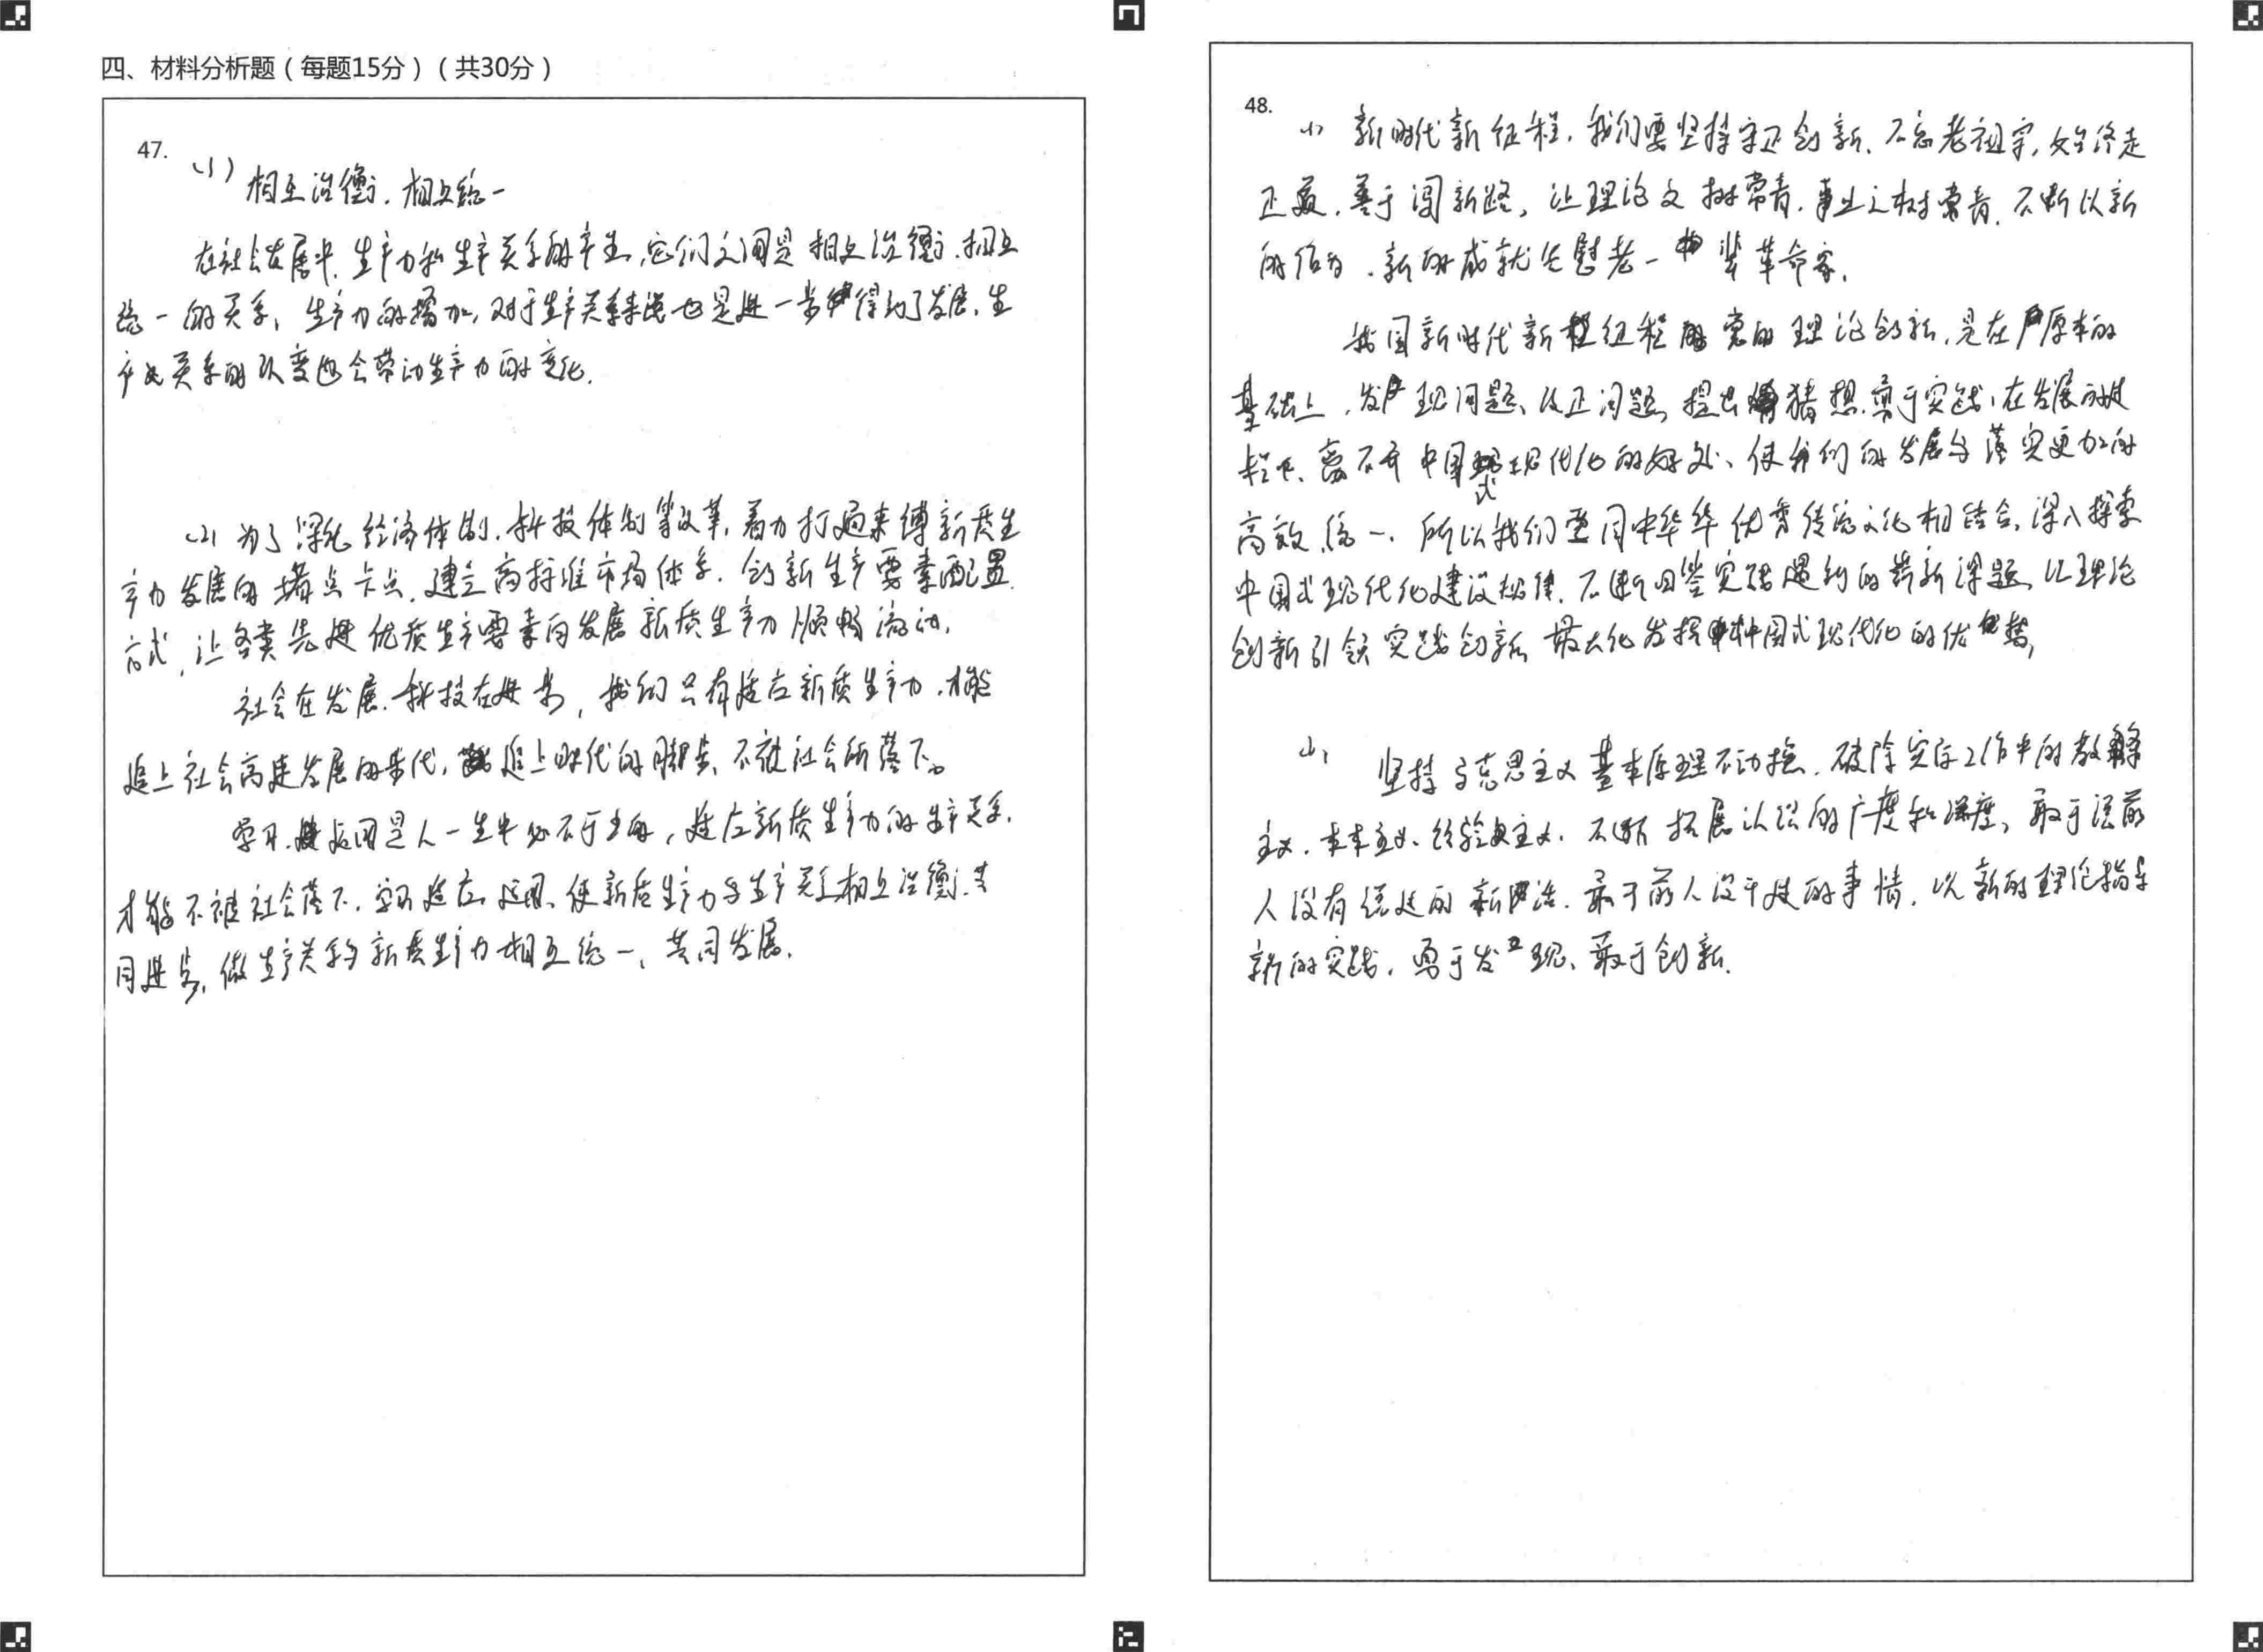 四、材料分析题（每题15分）（共30分）
47.
(1) 相互治衡，相互统一
在社会发展中，生产力和生产关系的产生，它们之间是相互治衡，相互
统一的关系，生产力的增加，对于生产关系来说也是进一步得到了发展，生
产关系的改变也会带动生产力的变化。
(2) 为了深化经济体制、科技体制等改革，着力打通束缚新质生
产力发展的堵点卡点，建立高标准市场体系，创新生产要素配置
方式，让各类先进优质生产要素向发展新质生产力顺畅流动。
社会在发展，科技在进步，我们只有适应新质生产力，才能
追上社会高速发展的步代，追上时代的脚步，不被社会所落下。
学习，运用是人一生中必不于少的，适应新质生产力的生产关系，
才能不被社会落下，学习适应，运用，使新质生产力与生产关系相互治衡，共
同进步，做生产关系与新质生产力相互统一、共同发展。
48.
(1) 新时代新征程，我们要坚持守正创新，不忘老祖宗，始终走
正道，善于闯新路，让理论之树常青，事业之树常青，不断以新
的作为，新的成就告慰老一辈革命家。
我国新时代新征程党的理论创新，是在原本的
基础上，发现问题、改正问题，提出猜想，勇于实践，在发展的进
程下，离不开中国式现代化的好处，使我们的发展与落实更加的
高效，统一，所以我们要同中华优秀传统文化相结合，深入探索
中国式现代化建设规律，不断回答实践遇到的崭新课题，让理论
创新引领实践创新，最大化发挥中国式现代化的优势，
坚持马克思主义基本原理不动摇，破除实际工作中的教条
主义、本本主义、经验主义，不断拓展认识的广度和深度，敢于说前
人没有说过的新话，敢于前人没干过的事情，以新的理论指导
新的实践，勇于发现、敢于创新。